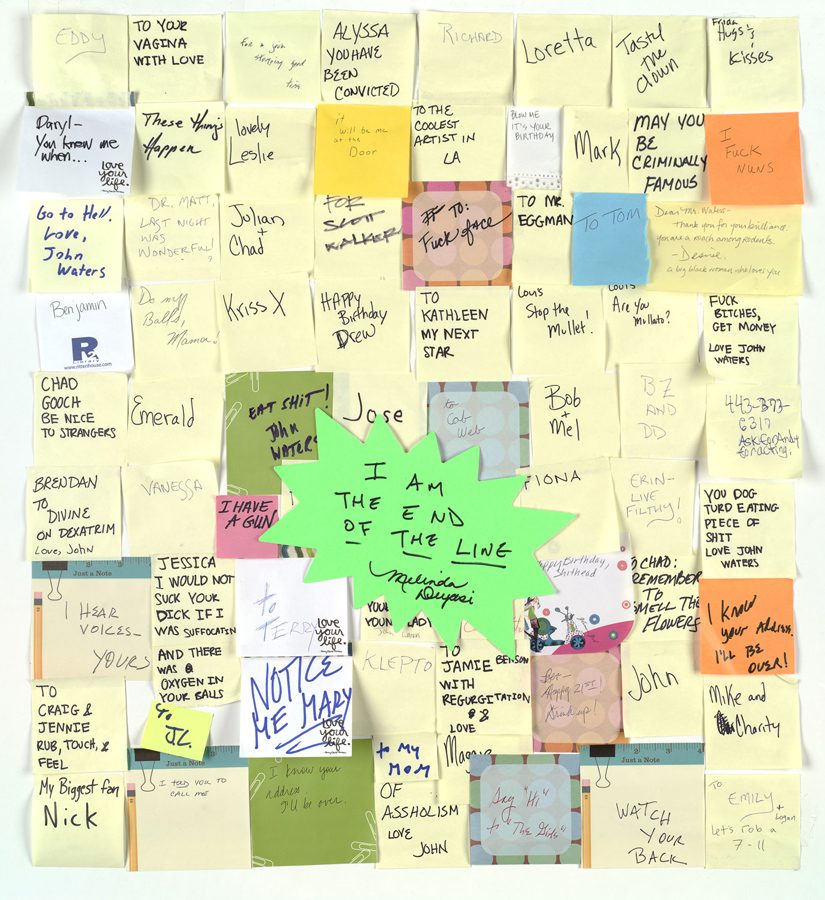 EDDY
TO YOUR
VAGINA
WITH LOVE
For a
ALYSSA
YOU HAVE
BEEN
CONVICTED
RICHARD
Loretta
Tasty
the
Clown
Hugs &
Kisses
Daryl-
You knew me
when...
love
your
life.
These things
Happen
lovely
Leslie
it
will be me
at the
Door
TO THE
COOLEST
ARTIST IN
LA
BLOW ME
IT'S YOUR
BIRTHDAY
Mark
MAY YOU
BE
CRIMINALLY
FAMOUS
I
FUCK
NUNS
Go to Hell.
Love,
John
Waters
DR. MATT,
LAST NIGHT
WAS
WONDERFUL!
Julian
+
Chad
FOR
SCOTT
WALKER
TO:
Fuck face
TO MR.
EGGMAN
TO TOM
Dear Mr. Waters-
Thank you for your brilliance.
you are a roach among rodents.
- Desiree
a big black woman who loves you
Benjamin
R2
Library
www.rittenhouse.com
Do my
Balls,
Mama!
Kriss X
HAPPY
Birthday
Drew
TO
KATHLEEN
MY NEXT
STAR
Louis
Stop the
Mullet!
Louis
Are You
Mullato?
FUCK
BITCHES,
GET MONEY
LOVE JOHN
WATERS
CHAD
GOOCH
BE NICE
TO STRANGERS
Emerald
EAT SHIT!
John
WATERS
Jose
to
Cob
Web
Bob
+
Mel
BZ
AND
DD
Ask for Andy
for acting.
BRENDAN
TO
DIVINE
ON DEXATRIM
Love, John
VANESSA
I HAVE
A GUN
I AM
THE END
OF THE LINE
Melinda
FIONA
ERIN-
LIVE
FILTHY!
YOU DOG
TURD EATING
PIECE OF
SHIT
LOVE JOHN
WATERS
Just a Note
I HEAR
VOICES-
YOURS
JESSICA
I WOULD NOT
SUCK YOUR
DICK IF I
WAS SUFFOCATIN
AND THERE
WAS
OXYGEN IN
YOUR BALLS
to
TERRY
love
your
life.
YOUN
LADY
Happy Birthday,
Shithead
CHAD:
REMEMBER
TO
SMELL THE
FLOWERS
I know
your Address.
I'LL BE
OVER!
TO
CRAIG &
JENNIE
RUB, TOUCH, &
FEEL
to
JC.
NOTICE
ME MARY
love
your
life.
KLEPTO
TO
JAMIE BENSON
WITH
REGURGITATION
LOVE
Happy 21st!
Drink up!
John
Mike and
Charity
My Biggest fan
Nick
Just a Note
I TOLD YOU TO
CALL ME
I know your
address
I'll be over.
to My
MOM
Maggie
OF
ASSHOLISM
LOVE
JOHN
Say "Hi"
to "The Girls"
Just a Note
WATCH
YOUR
BACK
TO
EMILY
+
Logan
Let's rob a
7-11